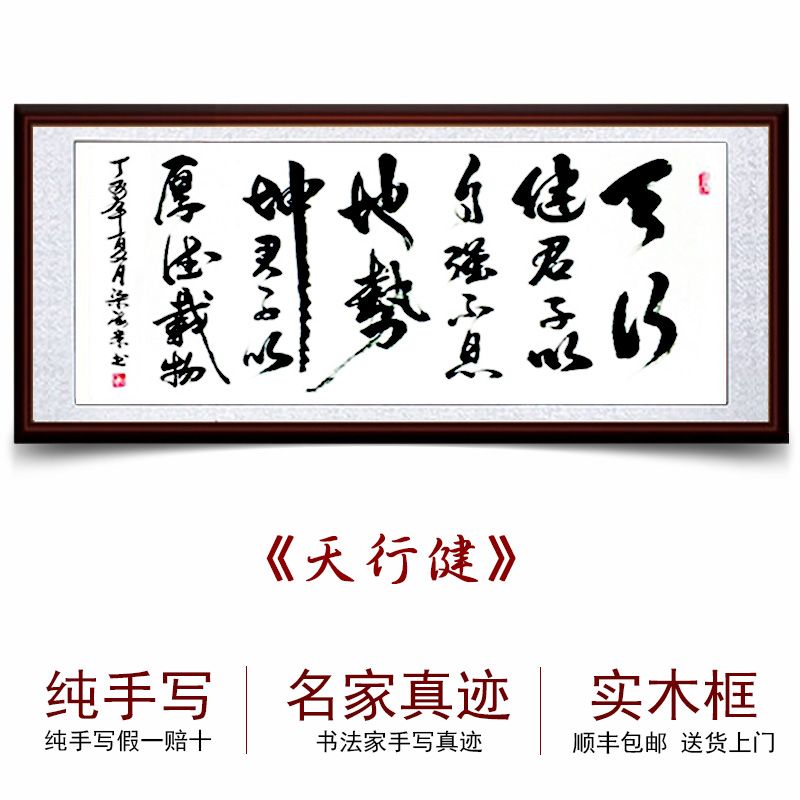 天行
健君子以
自强不息
地势
坤君子以
厚德载物
《天行健》
纯手写
纯手写假一赔十
名家真迹
书法家手写真迹
实木框
顺丰包邮 送货上门